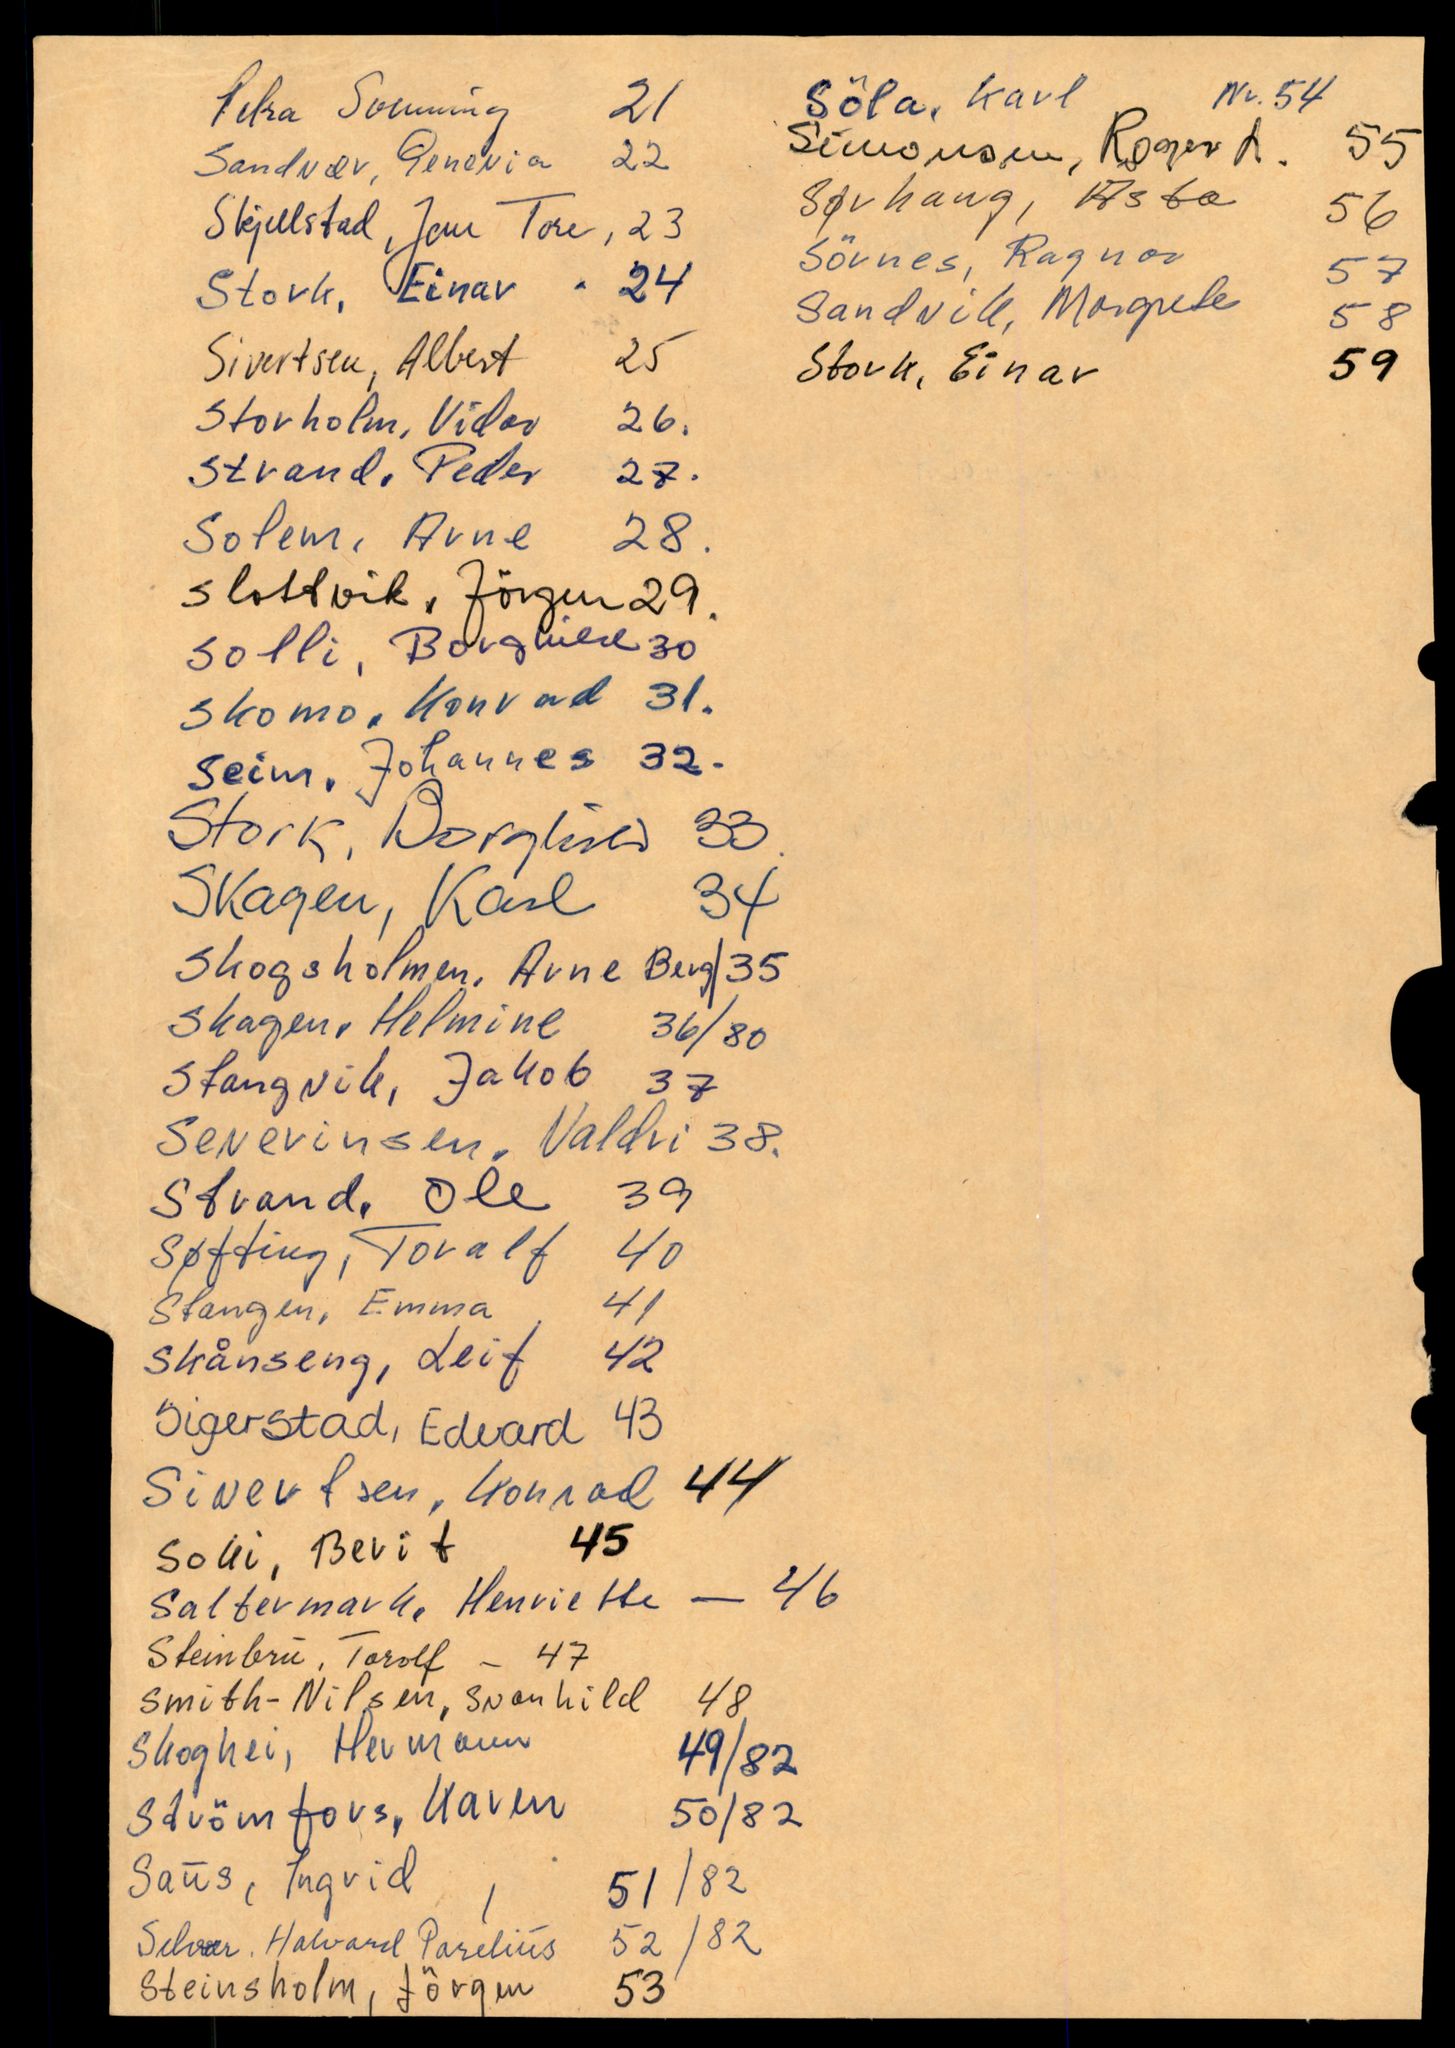 Petra Somming 21
Sandvær, Genevia 22
Skjellstad, Jan Tore, 23
Stork, Einar . 24
Sivertsen, Albert 25
Storholm, Vidar 26.
Strand, Peder 27.
Solem, Arne 28.
Slottvik, Jörgen 29.
Solli, Borghild 30
Skomo, Konrad 31.
Seim, Johannes 32.
Stork, Borghild 33.
Skagen, Karl 34
Skogsholmen, Arne Berg/35
Skagen, Helmine 36/80
Stangvik, Jakob 37
Severinsen, Valdri 38.
Strand, Ole 39
Søfting, Toralf 40
Stangen, Emma 41
Skånseng, Leif 42
Sigerstad, Edvard 43
Sivertsen, Konrad 44
Solli, Berit 45
Saltermark, Henriette — 46
Steinbru, Torolf – 47
Smith-Nilsen, Svanhild 48
Skoghei, Hermann 49/82
Strömfors, Karen 50/82
Saus, Ingrid , 51/82
Selvær, Halvard Parelius 52/82
Steinsholm, Jörgen 53
Söla, Karl Nr. 54
Simonsen, Roger A. 55
Sørhaug, Asta 56
Sörnes, Ragnar 57
Sandvik, Margrete 58
Stork, Einar 59